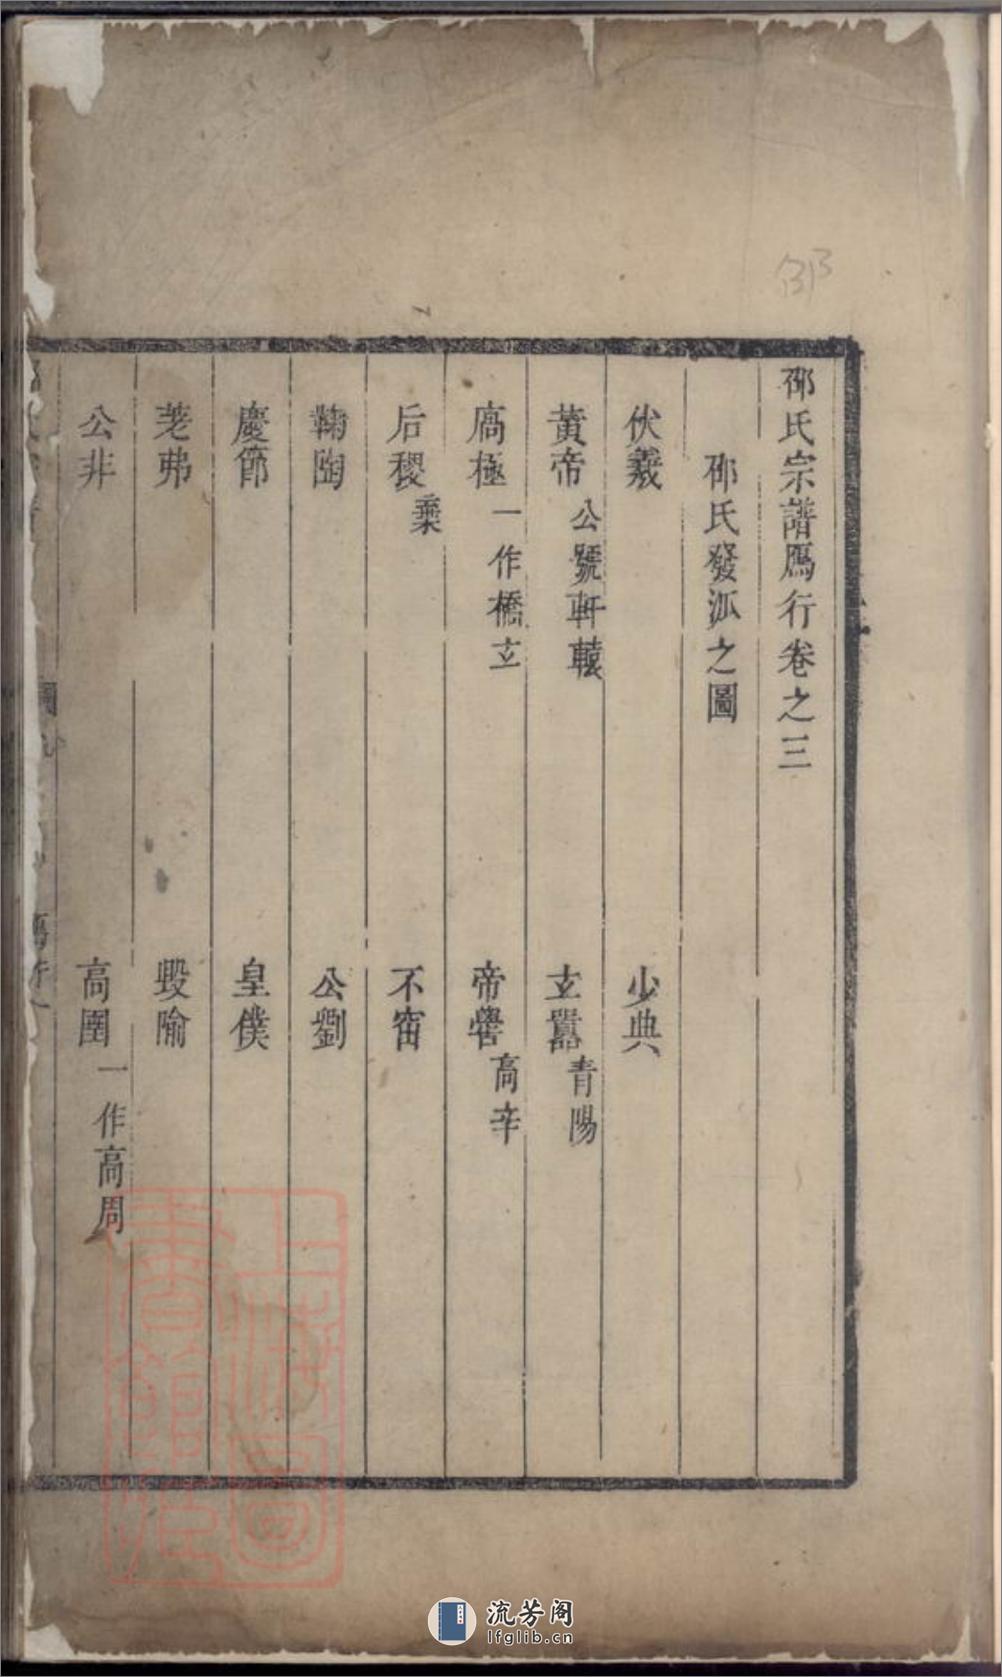 邵氏宗譜鴈行卷之三
邵氏發派之圖
伏羲 少典
黄帝 公號軒轅 玄囂 青陽
高極 一作橋玄 帝嚳 高辛
后稷 棄 不窋
鞠陶 公劉
慶節 皇僕
差弗 毀隃
公非 高圉 一作高周
邵
上海圖書館藏
流芳阁
lfglib.cn